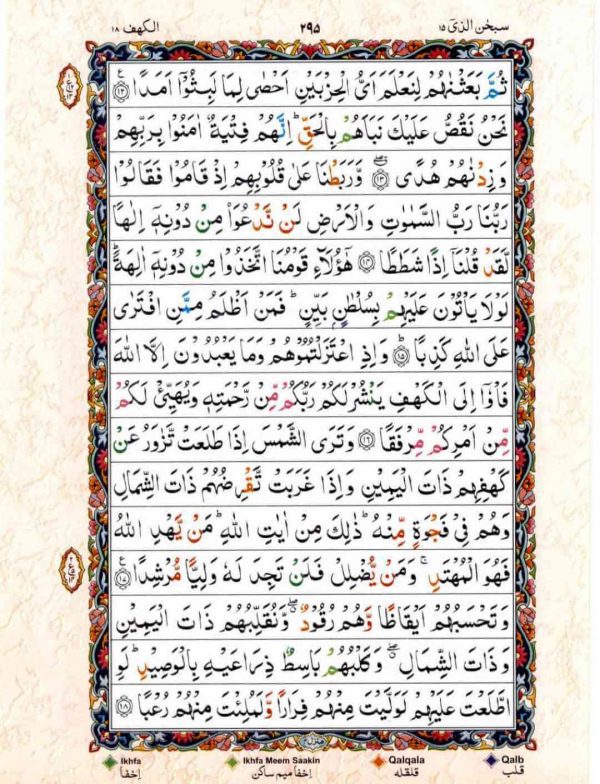 سبحٰن الذی ١٥ ٢٩٥ الکهف ١٨
ثُمَّ بَعَثْنٰهُمْ لِنَعْلَمَ اَیُّ الْحِزْبَیْنِ اَحْصٰی لِمَا لَبِثُوْۤا اَمَدًا ﴿١٢﴾ ع
نَحْنُ نَقُصُّ عَلَیْكَ نَبَاَهُمْ بِالْحَقِّ ؕ اِنَّهُمْ فِتْیَةٌ اٰمَنُوْا بِرَبِّهِمْ
وَ زِدْنٰهُمْ هُدًی ﴿١٣﴾ وَّ رَبَطْنَا عَلٰی قُلُوْبِهِمْ اِذْ قَامُوْا فَقَالُوْا
رَبُّنَا رَبُّ السَّمٰوٰتِ وَ الْاَرْضِ لَنْ نَّدْعُوَا۟ مِنْ دُوْنِهٖۤ اِلٰهًا
لَّقَدْ قُلْنَاۤ اِذًا شَطَطًا ﴿١٤﴾ هٰۤؤُلَآءِ قَوْمُنَا اتَّخَذُوْا مِنْ دُوْنِهٖۤ اٰلِهَةً ؕ
لَوْ لَا یَاْتُوْنَ عَلَیْهِمْ بِسُلْطٰنٍۭ بَیِّنٍ ؕ فَمَنْ اَظْلَمُ مِمَّنِ افْتَرٰی
عَلَی اللّٰهِ كَذِبًا ﴿١٥﴾ؕ وَ اِذِ اعْتَزَلْتُمُوْهُمْ وَ مَا یَعْبُدُوْنَ اِلَّا اللّٰهَ
فَاْوٗۤا اِلَی الْكَهْفِ یَنْشُرْ لَكُمْ رَبُّكُمْ مِّنْ رَّحْمَتِهٖ وَ یُهَیِّئْ لَكُمْ
مِّنْ اَمْرِكُمْ مِّرْفَقًا ﴿١٦﴾ وَ تَرَی الشَّمْسَ اِذَا طَلَعَتْ تَّزٰوَرُ عَنْ
كَهْفِهِمْ ذَاتَ الْیَمِیْنِ وَ اِذَا غَرَبَتْ تَّقْرِضُهُمْ ذَاتَ الشِّمَالِ
وَ هُمْ فِیْ فَجْوَةٍ مِّنْهُ ؕ ذٰلِكَ مِنْ اٰیٰتِ اللّٰهِ ؕ مَنْ یَّهْدِ اللّٰهُ
فَهُوَ الْمُهْتَدِ ۚ وَ مَنْ یُّضْلِلْ فَلَنْ تَجِدَ لَهٗ وَلِیًّا مُّرْشِدًا ﴿١٧﴾ ع
وَ تَحْسَبُهُمْ اَیْقَاظًا وَّ هُمْ رُقُوْدٌ ۖۗ وَّ نُقَلِّبُهُمْ ذَاتَ الْیَمِیْنِ
وَ ذَاتَ الشِّمَالِ ۖۗ وَ كَلْبُهُمْ بَاسِطٌ ذِرَاعَیْهِ بِالْوَصِیْدِ ؕ لَوِ
اطَّلَعْتَ عَلَیْهِمْ لَوَلَّیْتَ مِنْهُمْ فِرَارًا وَّ لَمُلِئْتَ مِنْهُمْ رُعْبًا ﴿١٨﴾
Ikhfa Ikhfa Meem Saakin Qalqala Qalb
اِخفَا اِخفَا میم ساکن قلقله قلب